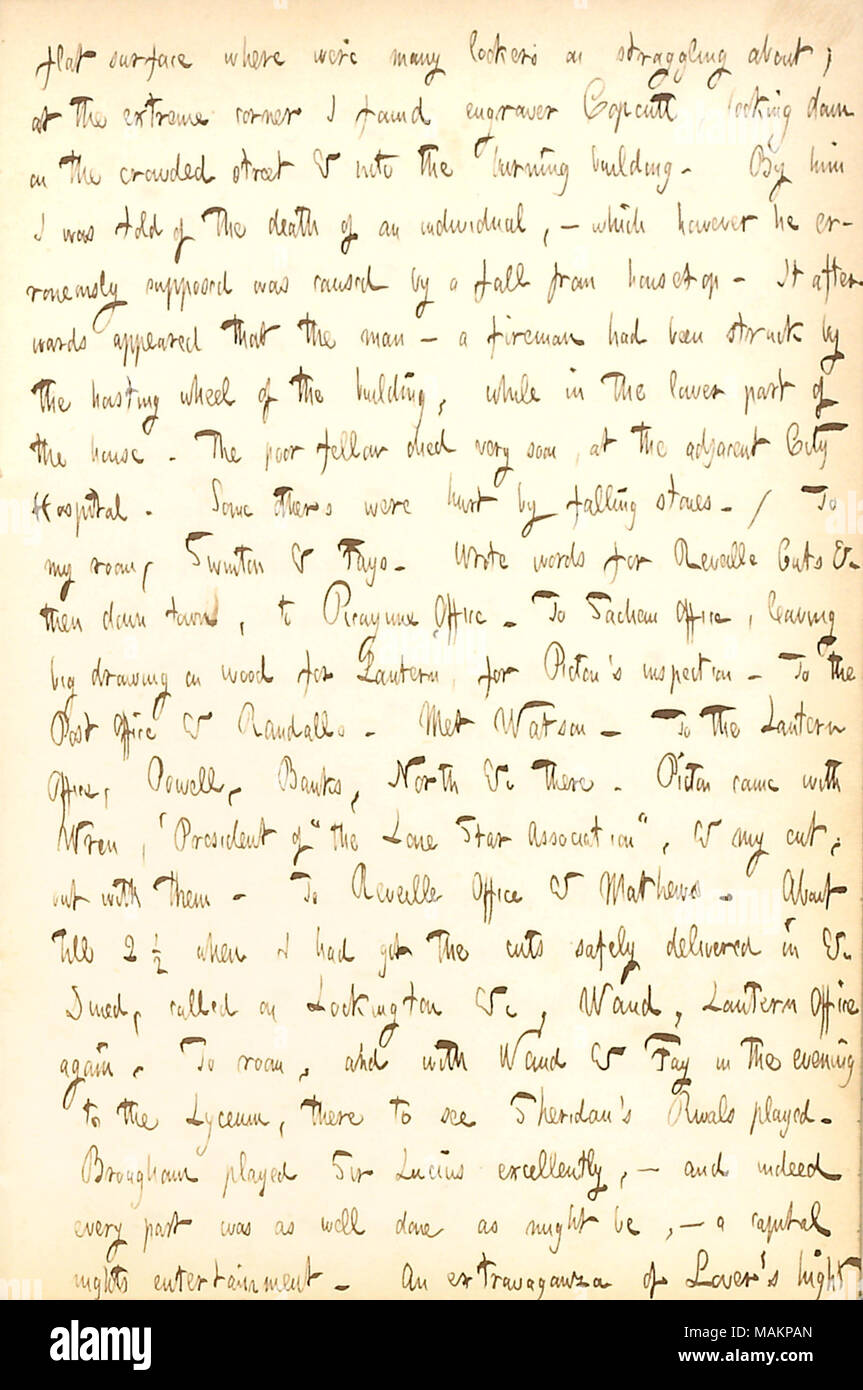 flat surface where were many lookers on straggling about;
at the extreme corner I found engraver Copcutt, looking down
on the crowded street & into the burning building. By him
I was told of the death of an individual, — which however he er-
roneously supposed was caused by a fall from housetop — It after
wards appeared that the man — a fireman had been struck by
the hoisting wheel of the building, while in the lower part of
the house. The poor fellow died very soon, at the adjacent City
Hospital. Some others were hurt by falling stones. / To
my room, Swinton & Fays. Wrote words for Reveille Cuts &c
then down town, to Picayune Office. To Sachem Office, leaving
big drawing on wood for Lantern, for Picton's inspection. To the
Post Office & Randalls. Met Watson. To the Lantern
Office, Powell, Banks, North &c there. Picton came with
Wren, "President of "the Lone Star Association", & my cut,
out with them. To Reveille Office & Mathews. About
till 2 ½ when I had got the cuts safely delivered in &c.
Dined, called on Lockington &c, Waud, Lantern Office
again. To room, and with Waud & Fay in the evening
to the Lyceum, there to see Sheridan's Rivals played.
Brougham played Sir Lucius excellently, — and indeed
every part was as well done as might be, — a capital
nights entertainment. An extravaganza of Lover's hight
alamy
Image ID: MAKPAN
www.alamy.com